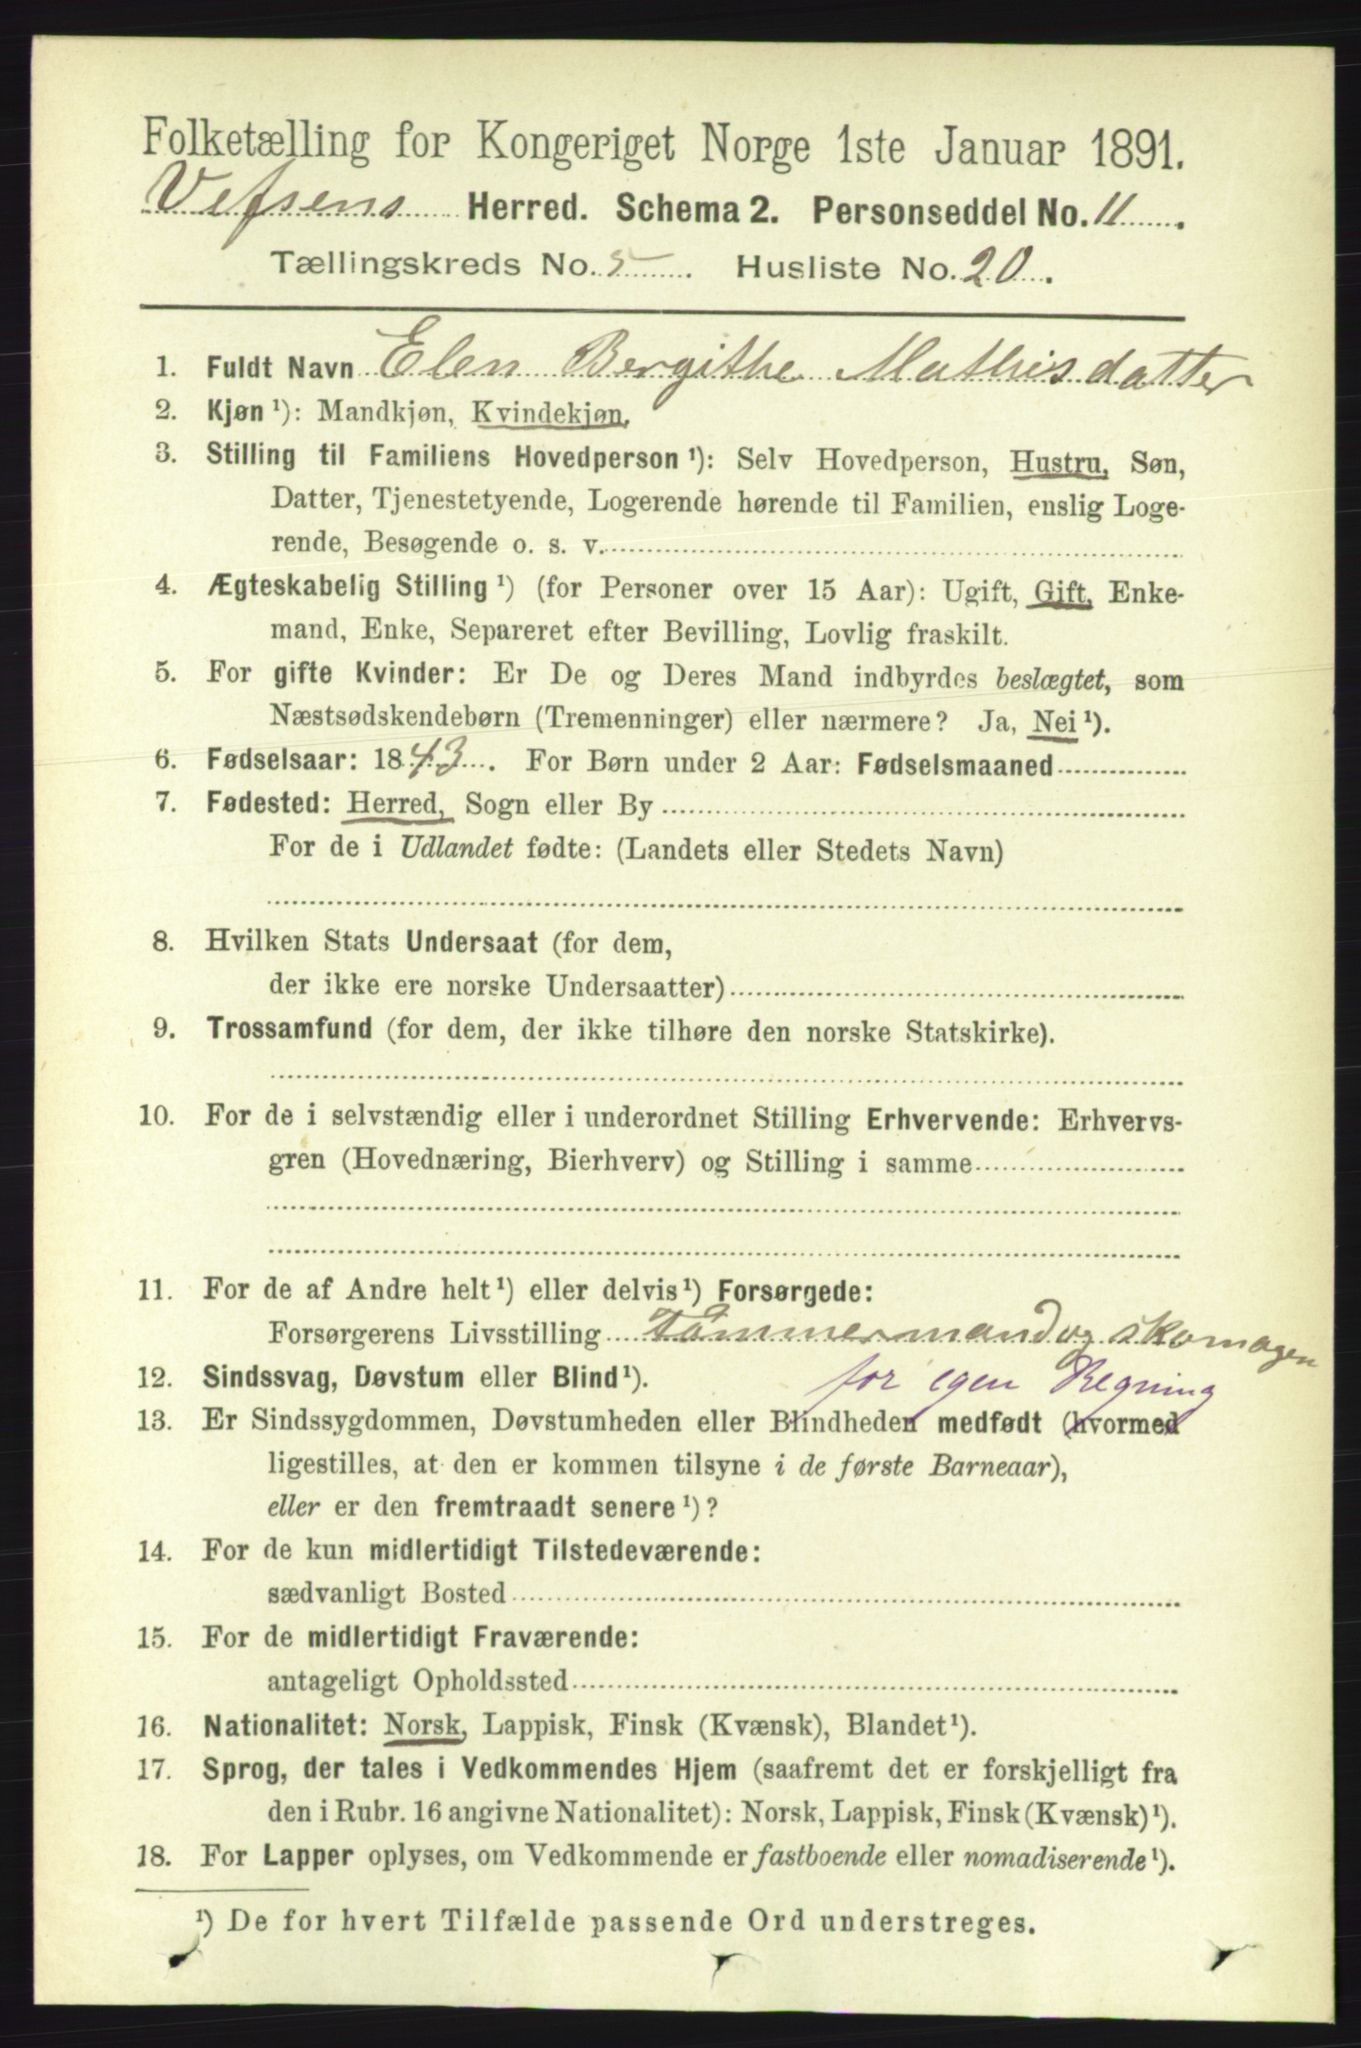 Folketælling for Kongeriget Norge 1ste Januar 1891.
Vefsens Herred. Schema 2. Personseddel No. 11.
Tællingskreds No. 5. Husliste No. 20.
1. Fuldt Navn Elen Bergithe Mathisdatter
2. Kjøn ¹): Mandkjøn, Kvindekjøn.
3. Stilling til Familiens Hovedperson ¹): Selv Hovedperson, Hustru, Søn,
Datter, Tjenestetyende, Logerende hørende til Familien, enslig Loge-
rende, Besøgende o. s. v.
4. Ægteskabelig Stilling ¹) (for Personer over 15 Aar): Ugift, Gift, Enke-
mand, Enke, Separeret efter Bevilling, Lovlig fraskilt.
5. For gifte Kvinder: Er De og Deres Mand indbyrdes beslægtet, som
Næstsødskendebørn (Tremenninger) eller nærmere? Ja, Nei ¹).
6. Fødselsaar: 1843. For Børn under 2 Aar: Fødselsmaaned
7. Fødested: Herred, Sogn eller By
For de i Udlandet fødte: (Landets eller Stedets Navn)
8. Hvilken Stats Undersaat (for dem,
der ikke ere norske Undersaatter)
9. Trossamfund (for dem, der ikke tilhøre den norske Statskirke).
10. For de i selvstændig eller i underordnet Stilling Erhvervende: Erhvervs-
gren (Hovednæring, Bierhverv) og Stilling i samme
11. For de af Andre helt ¹) eller delvis ¹) Forsørgede:
Forsørgerens Livsstilling Tømmermand og skomagen
12. Sindssvag, Døvstum eller Blind ¹). for egen Regning
13. Er Sindssygdommen, Døvstumheden eller Blindheden medfødt (hvormed
ligestilles, at den er kommen tilsyne i de første Barneaar),
eller er den fremtraadt senere ¹)?
14. For de kun midlertidigt Tilstedeværende:
sædvanligt Bosted
15. For de midlertidigt Fraværende:
antageligt Opholdssted
16. Nationalitet: Norsk, Lappisk, Finsk (Kvænsk), Blandet ¹).
17. Sprog, der tales i Vedkommendes Hjem (saafremt det er forskjelligt fra
den i Rubr. 16 angivne Nationalitet): Norsk, Lappisk, Finsk (Kvænsk) ¹).
18. For Lapper oplyses, om Vedkommende er fastboende eller nomadiserende ¹).
¹) De for hvert Tilfælde passende Ord understreges.